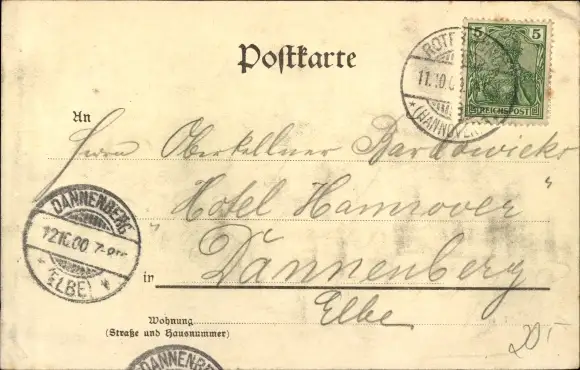 Postkarte
5 5
REICHSPOST
ROTE
11.10.0
*(HANNOVER)
An
Herrn Oberkellner Bardowicks
"Hotel Hannover"
DANNENBERG
12.10.00 7-8
* (ELBE) *
in Dannenberg
Elbe
Wohnung
(Straße und Hausnummer)
20.-
DANNENBERG